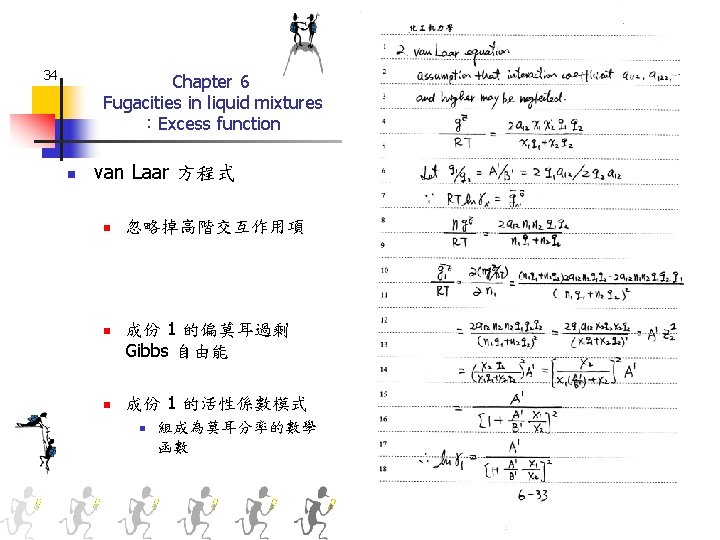 34
Chapter 6
Fugacities in liquid mixtures
：Excess function
van Laar 方程式
忽略掉高階交互作用項
成份 1 的偏莫耳過剩
Gibbs 自由能
成份 1 的活性係數模式
組成為莫耳分率的數學
函數
化工熱力學
1 2. van Laar equation
2 assumption that interaction coefficient a112, a122
3 and higher may be neglected.
4 g^E/RT = 2a12 x1 x2 q1 q2 / (x1q1+x2q2)
5
6 Let q1/q2 = A'/B' = 2 q1 a12 / 2 q2 a12
7 ∵ RT ln γ1 = ḡ1^E
8 n g^E/RT = 2a12 n1 n2 q1 q2 / (n1q1 + n2q2)
9
10 ḡ1^E/RT = ∂(ng^E/RT)/∂n1 = ((n1q1+n2q2)2a12 n2q1q2 - 2a12 n1n2q1q2 q1) / (n1q1+n2q2)²
11
12 = 2a12 n2 n2 q1 q2 q2 / (n1q1+n2q2)² = 2q1 a12 x2q2 x2q2 / (x1q1+x2q2)² = A' z2²
13
14 = (x2 q2 / (x1q1+x2q2))² A' = [x2 / (x1(A'/B')+x2)]² A'
15 = A' / [1 + A'/B' x1/x2]²
16
17 ∴ ln γ1 = A' / [1 + A'/B' x1/x2]²
18
6-33